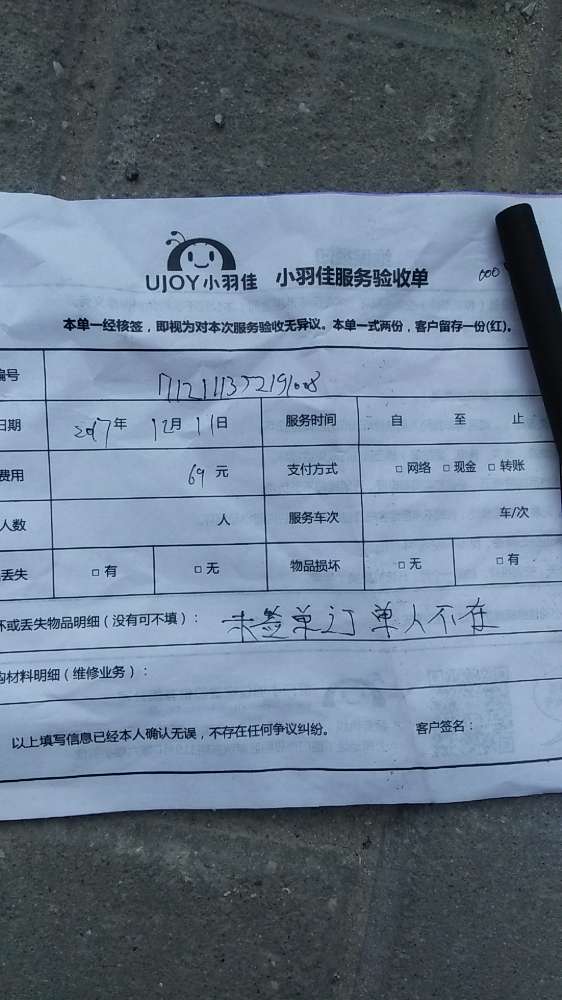 UJOY小羽佳 小羽佳服务验收单 000
本单一经核签，即视为对本次服务验收无异议。本单一式两份，客户留存一份(红)。
编号
日期 2017年 12月 11日 服务时间 自 至 止
费用 69元 支付方式 □ 网络 □ 现金 □ 转账
人数 人 服务车次 车/次
丢失 □ 有 □ 无 物品损坏 □ 无 □ 有
坏或丢失物品明细（没有可不填）： 未签单订单人不在
购材料明细（维修业务）：
以上填写信息已经本人确认无误，不存在任何争议纠纷。 客户签名：